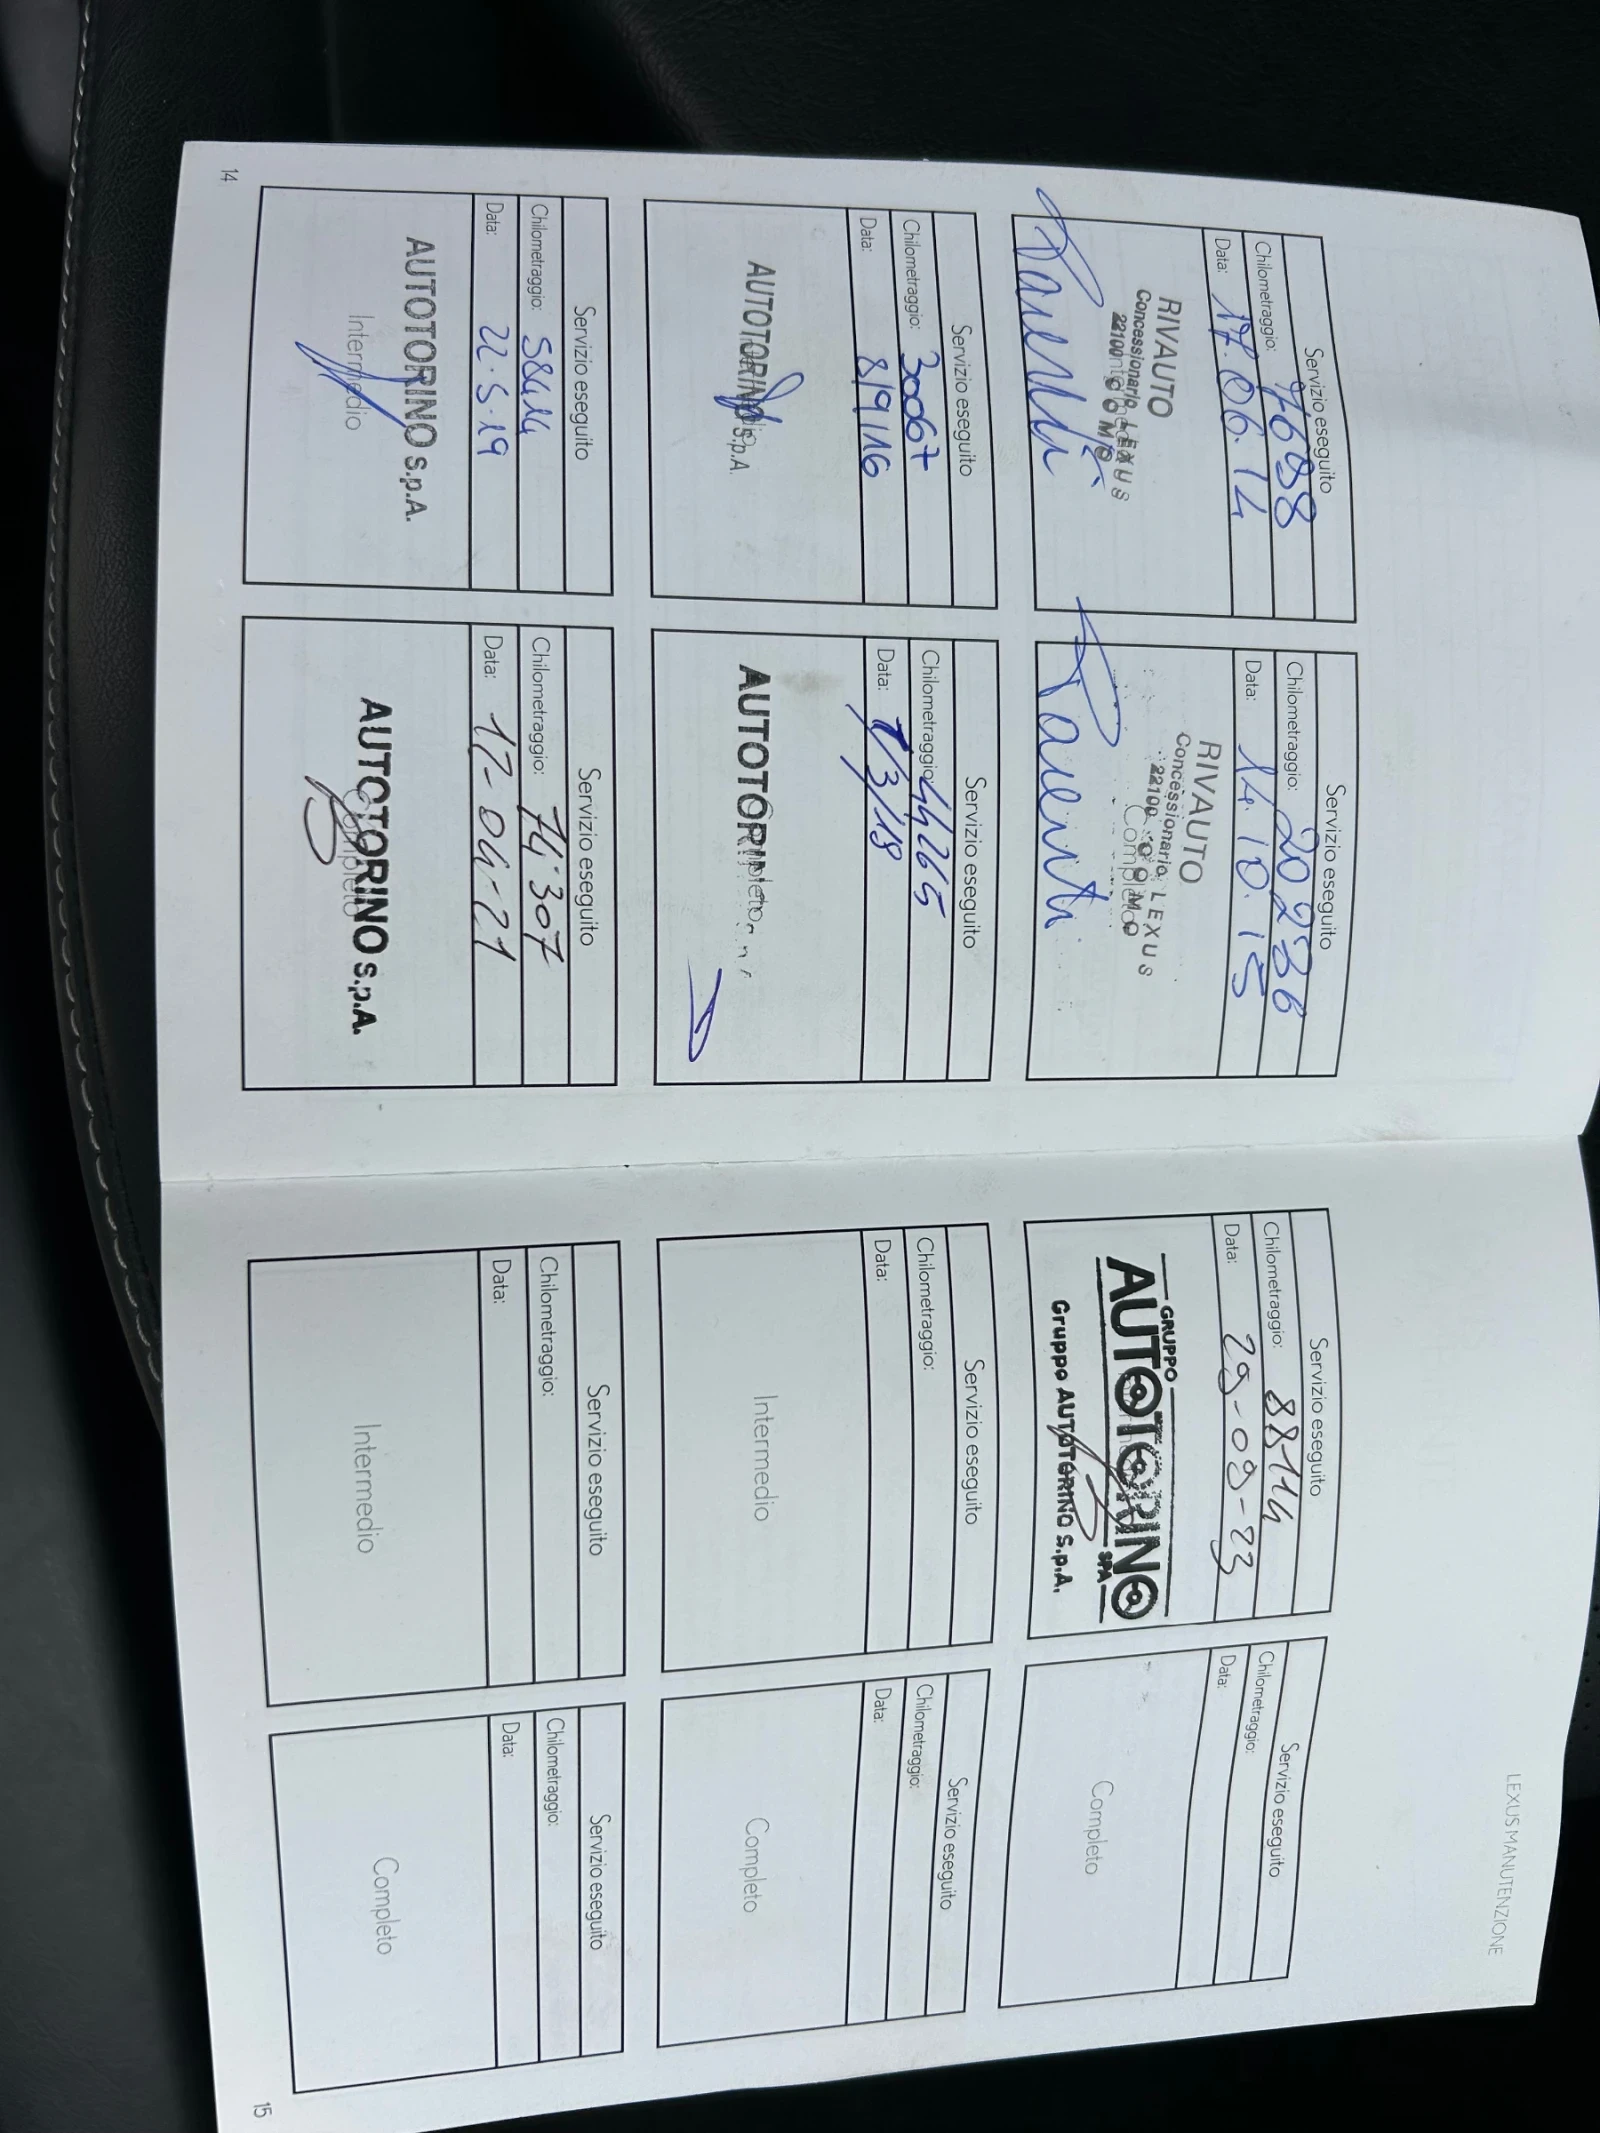 Servizio eseguito
Chilometraggio: 7698
Data: 17.06.14
RIVAUTO
Concessionario LEXUS
22100 COMO
Servizio eseguito
Chilometraggio: 20236
Data: 14.10.15
RIVAUTO
Concessionaria LEXUS
22100 COMO
Completo
Servizio eseguito
Chilometraggio: 30067
Data: 8/9/16
AUTOTORINO s.p.A.
Servizio eseguito
Chilometraggio: 44265
Data: 1/3/18
AUTOTORIN
Completo
Servizio eseguito
Chilometraggio: 58414
Data: 22.5.19
AUTOTORINO s.p.A.
Intermedio
Servizio eseguito
Chilometraggio: 74.307
Data: 17-04-21
AUTOTORINO s.p.A.
Completo
14
LEXUS MANUTENZIONE
Servizio eseguito
Chilometraggio: 88114
Data: 29-09-23
GRUPPO
AUTOTORINO
SPA
Gruppo AUTOTORINO S.p.A.
Servizio eseguito
Chilometraggio:
Data:
Completo
Servizio eseguito
Chilometraggio:
Data:
Intermedio
Servizio eseguito
Chilometraggio:
Data:
Completo
Servizio eseguito
Chilometraggio:
Data:
Intermedio
Servizio eseguito
Chilometraggio:
Data:
Completo
15